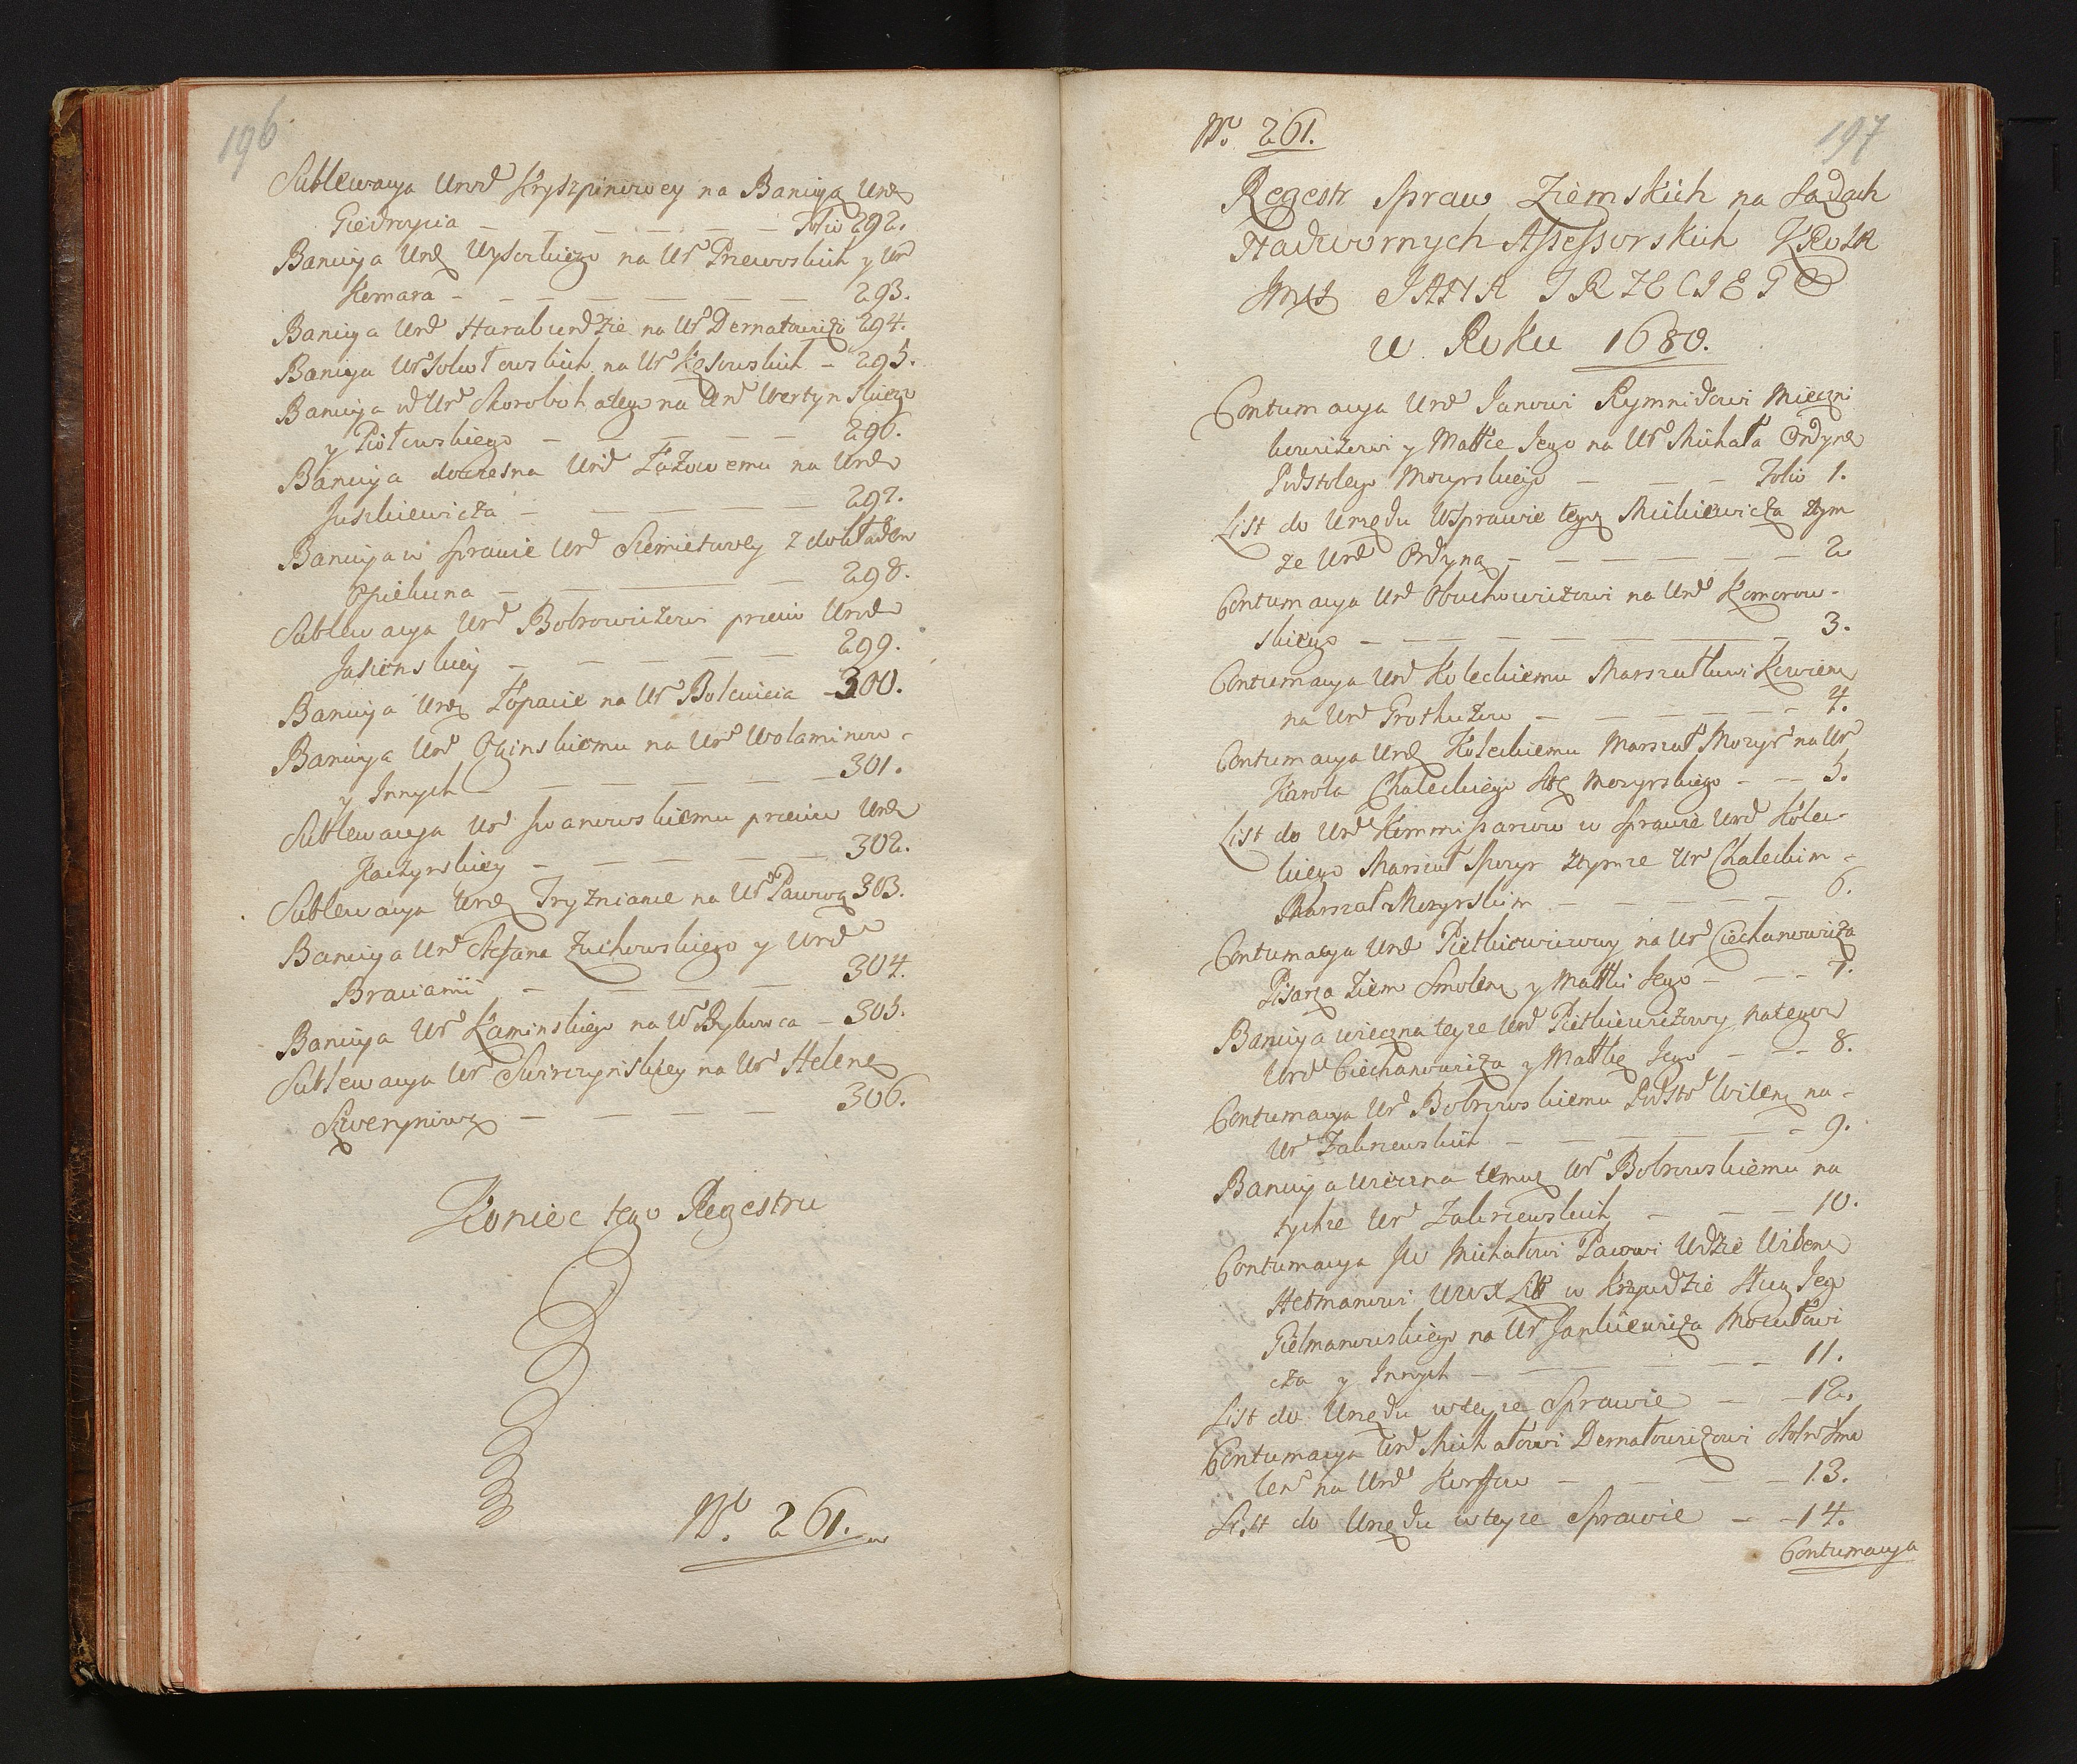 196
Sublewacya Urod Kryszpinowey na Banicyą Urd
Giedroycia — — — — — — Folio 292.
Banicya Urd Wysockiego na Ur Przewoskich y Ur
Komara — — — — — — — 293.
Banicya Urd Haraburdzie na Ur Dernałowicza 294.
Banicya Ur Sokołowskich na Ur Kęsowskich — 295.
Banicya od Urd Skorobohatego na Urd Wertynskiego
y Piotrowskiego — — — — — 296.
Banicya doczesna Urd Łazowemu na Urd
Juszkiewicza — — — — — 297.
Banicya w Sprawie Urd Siemietowey z dokładem
Opiekuna — — — — 298.
Sublewacya Urd Bobrowiczowi przeciw Urod
Jasienskiey — — — — — 299.
Banicya Urd Łopacie na Ur Bolcewicia — 300.
Banicya Urd Oginskiemu na Urd Wołaminow-
y Innych — — — — — — 301.
Sublewacya Urd Iwanowskiemu przeciw Urd
Kaczynskiey — — — — — 302.
Sublewacya Urd Tryznianie na Ur Pacową 303.
Banicya Urd Stefana Zuchowskiego y Urd
Braciami — — — — — 304.
Banicya Urd Kaminskiego na Ur Bykowca — 305.
Sublewacya Ur Swirczynskiey na Ur Helenę
Sweryniową — — — — — 306.
Koniec tego Regestru
No. 261.
No. 261.
197
Regestr Spraw Ziemskich na Sądach
Nadwornych Assessorskich Z Rozk
Jmći JANA TRZECIEGO
w Roku 1680.
Contumacya Urd Janowi Rymnidowi Mieczni
kowiczowi y Matce Jego na Urd Michała Ordynę
Podstolego Mozyrskiego — — — Folio 1.
List do Urzędu W sprawie tegoż Mickiewicza z tym
ze Urd Ordyną — — — — — — 2
Contumacya Urd Obuchowiczowi na Urd Komorow-
skiego — — — — — — — — 3.
Contumacya Urd Koleckiemu Marszałkowi Kowien
na Urd Grothuzow — — — — — — 4.
Contumacya Urd Koleckiemu Marszał Mozyr na Ur
Karola Chaleckiego Stę Mozyrskiego — — — 5.
List do Urd Kommissarzow w Sprawie Urd Kolec-
kiego Marszał Mozyr z tymze Ur Chaleckim -
Marszał Mozyrskim — — — — — 6.
Contumacya Urd Pietkiewiczowey na Ur Ciechanowicza
Pisarza Ziem Smolen y Matki Jego — — — 7.
Banicya wieczna teyze Urd Pietkiewiczowy na tegoz
Urd Ciechanowicza y Matkę Jego — — — 8.
Contumacya Urd Bobrowskiemu Podsto Wilen na-
Ur Zakrzewskich — — — — — — 9.
Banicya wieczna temuz Ur Bobrowskiemu na
tychze Ur Zakrzewskich — — — 10.
Contumacya JW Michałowi Pacowi Wdzie Wilen
Hetmanowi WWX Litt w krzywdzie Sług Jego
Gielmanowskiego na Ur Jankiewicza Moczułowi
cza y Innych — — — — — — 11.
List do Urzędu w teyze Sprawie — — 12.
Contumacya Urd Michałowi Dernałowiczowi Stolni Smo
len na Urd Korffow — — — — 13.
List do Urzędu w teyze Sprawie — — 14.
Contumacya